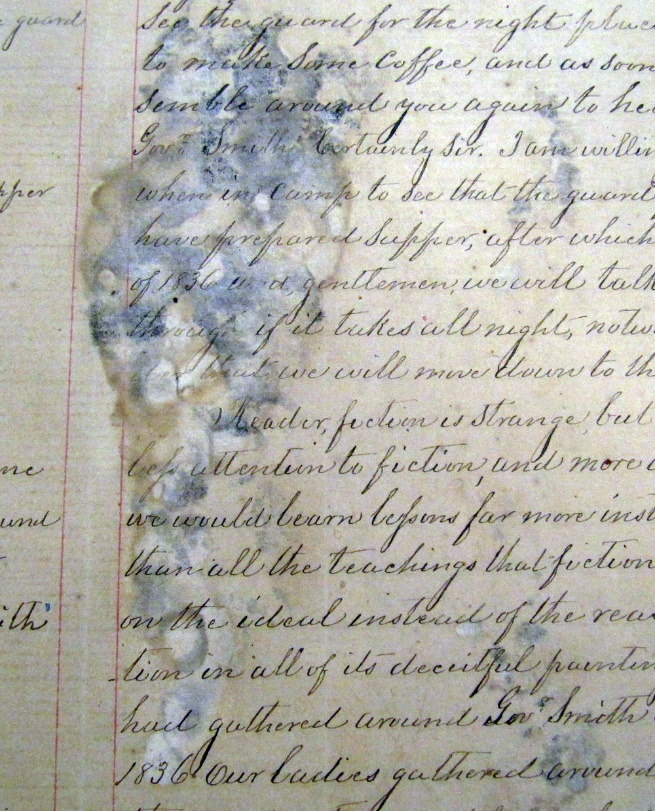 e guard
see the guard for the night plac
to make some coffee, and as soon
semble around you again to hea
Gov.r Smith. Certainly sir. I am willin
when in camp to see that the guard
pper
have prepared supper, after which
of 1836 a d, gentlemen, we will talk
through if it takes all night, notw
that we will move down to th
Reader, fiction is strange, but
less attention to fiction, and more a
ne
we would learn lessons far more inst
und
than all the teachings that fiction
on the ideal instead of the rea
ith
tion in all of its deceitful paintin
had gathered around Gov.r Smith
1836. Our ladies gathered around